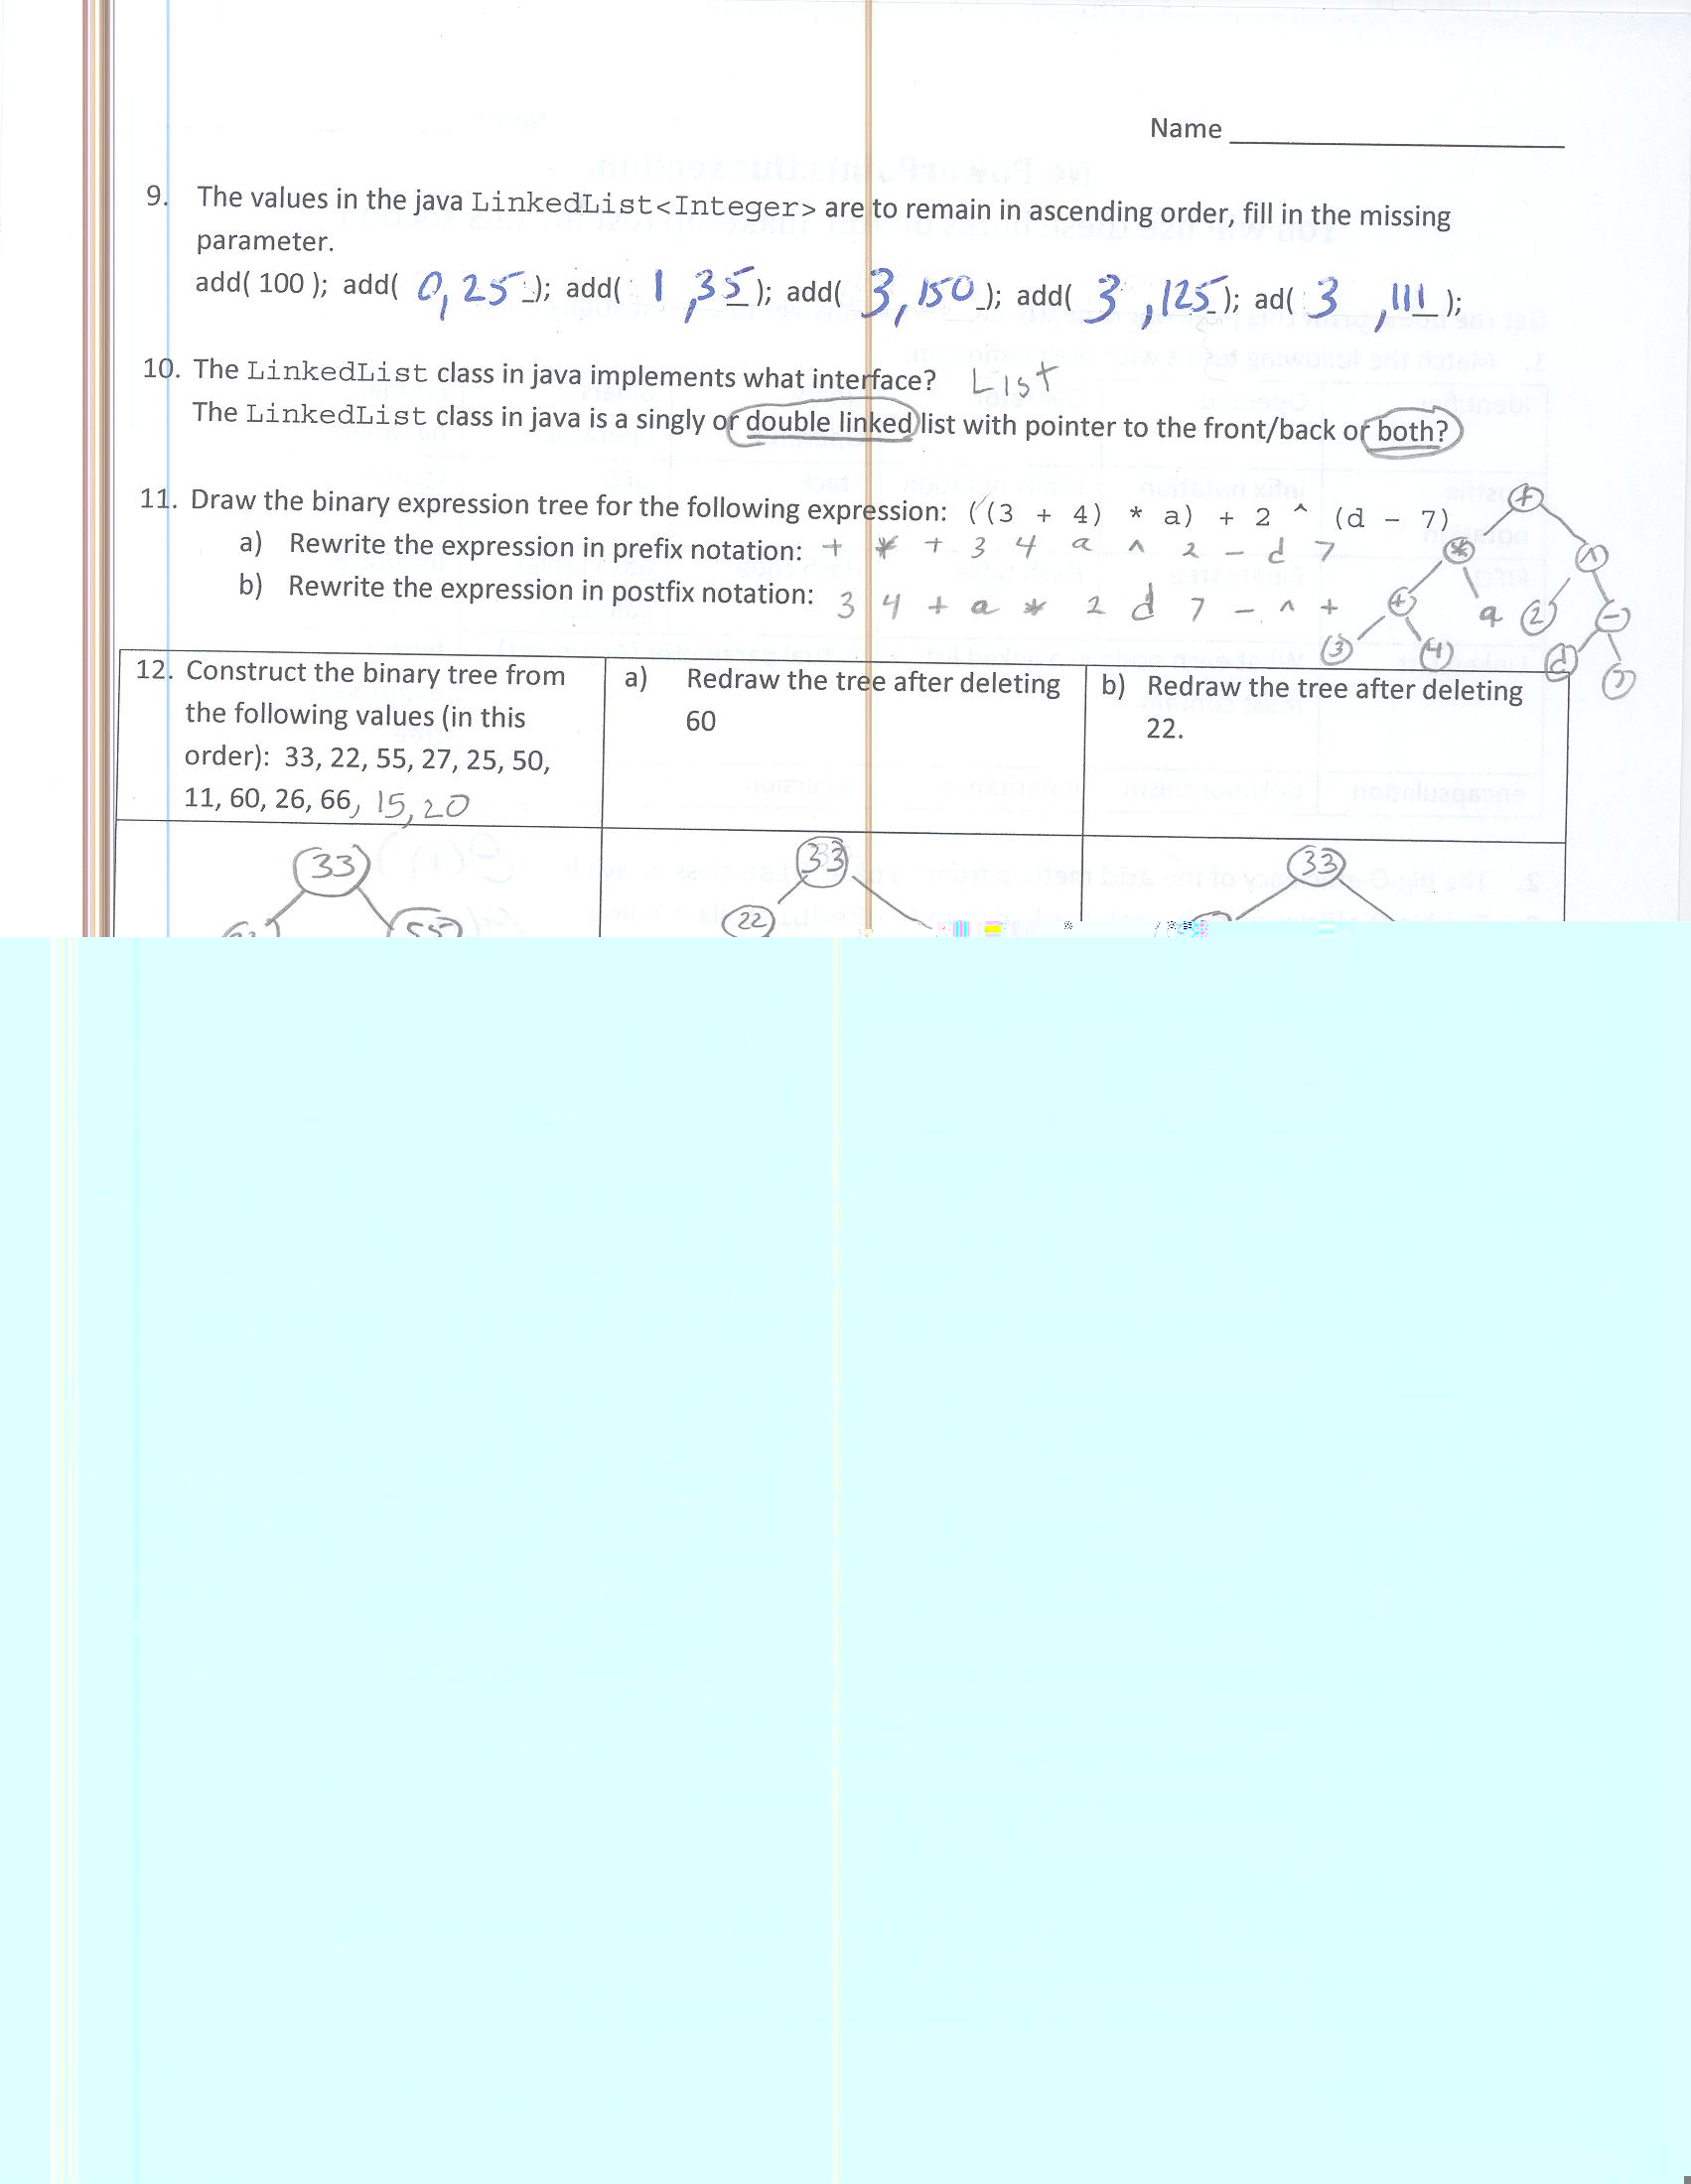 Name
9. The values in the java LinkedList<Integer> are to remain in ascending order, fill in the missing
parameter.
add( 100 ); add( 0, 25 ); add( 1 , 35 ); add( 3, 150 ); add( 3 , 125 ); ad( 3 , 111 );
10. The LinkedList class in java implements what interface? List
The LinkedList class in java is a singly or double linked list with pointer to the front/back or both?
11. Draw the binary expression tree for the following expression: ((3 + 4) * a) + 2 ^ (d - 7)
a) Rewrite the expression in prefix notation: + * + 3 4 a ^ 2 - d 7
b) Rewrite the expression in postfix notation: 3 4 + a * 2 d 7 - ^ +
+
* ^
+ a 2 -
3 4 d 7
12. Construct the binary tree from
the following values (in this
order): 33, 22, 55, 27, 25, 50,
11, 60, 26, 66, 15, 20
a) Redraw the tree after deleting
60
b) Redraw the tree after deleting
22.
33 33 33
55 22